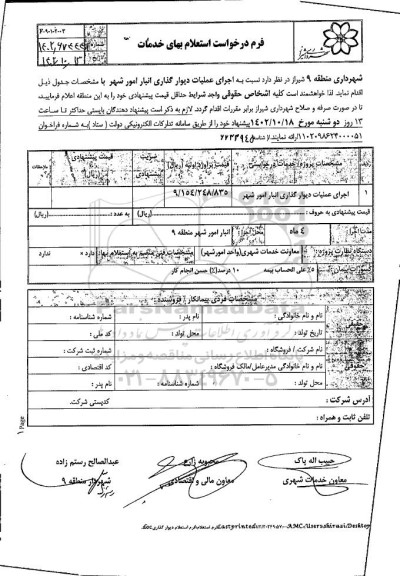 فرم درخواست استعلام بهای خدمات
شهرداری منطقه ۹ شیراز در نظر دارد نسبت به اجرای عملیات دیوار گذاری انبار امور شهر با مشخصات جدول ذیل
اقدام نماید. لذا خواهشمند است کلیه اشخاص حقوقی واجد شرایط حداقل قیمت پیشنهادی خود را به این منطقه اعلام فرمایید
تا در صورت صرفه و صلاح شهرداری شیراز برابر مقررات اقدام گردد. لازم به ذکر است پیشنهاد دهندگان بایستی حداکثر تا ساعت
۱۳ روز دو شنبه مورخ ۱۴۰۲/۱۰/۱۸ پیشنهاد خود را از طریق سامانه تدارکات الکترونیکی دولت ( ستاد ) به شماره فراخوان
ارائه نمایند.
ردیف مشخصات پروژه/خدمات درخواستی قیمت برآورد اولیه (ریال) ضریب پیشنهادی قیمت پیشنهادی (ریال)
۱ اجرای عملیات دیوار گذاری انبار امور شهر ۹/۱۵۴/۲۴۸/۸۳۵
قیمت پیشنهادی به حروف : (ریال) به عدد : (ریال)
مدت اجرا ۴ ماه محل اجرا انبار امور شهر منطقه ۹
دستگاه نظارت پروژه: معاونت خدمات شهری(واحد امورشهر) مشخصات فنی منضم به استعلام بهاء دارد × ندارد
۵٪ علی الحساب بیمه ۱۰ درصد(٪) حسن انجام کار
مشخصات فردی پیمانکار / فروشنده :
نام و نام خانوادگی : نام پدر : شماره شناسنامه :
تاریخ تولد : محل تولد : کد ملی :
حقوقی نام شرکت / فروشگاه : شماره ثبت شرکت :
نام و نام خانوادگی مدیرعامل/مالک فروشگاه : کد اقتصادی :
محل تولد : شماره شناسنامه : نام پدر :
آدرس شرکت : کدپستی شرکت.
تلفن ثابت و همراه :
۰۲۱-۸۸۳۴۹۶۷۰-۵
حبیب اله پاک عبدالصالح رستم زاده
معاون خدمات شهری معاون مالی و اقتصادی شهردار منطقه ۹